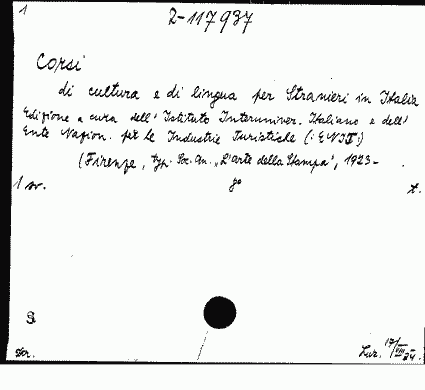 1
2-117937
Corsi
di cultura e di lingua per Stranieri in Italia
Edizione a cura dell' Istituto Interuniver. Italiano e dell'
Ente Nazion. per le Industrie Turistiche (: ENIT :)
(Firenze, typ. Soc. An. „L'arte della Stampa", 1923-
1 sv. 8° t.
S
Dr.
Lur. 17/VIII 34.